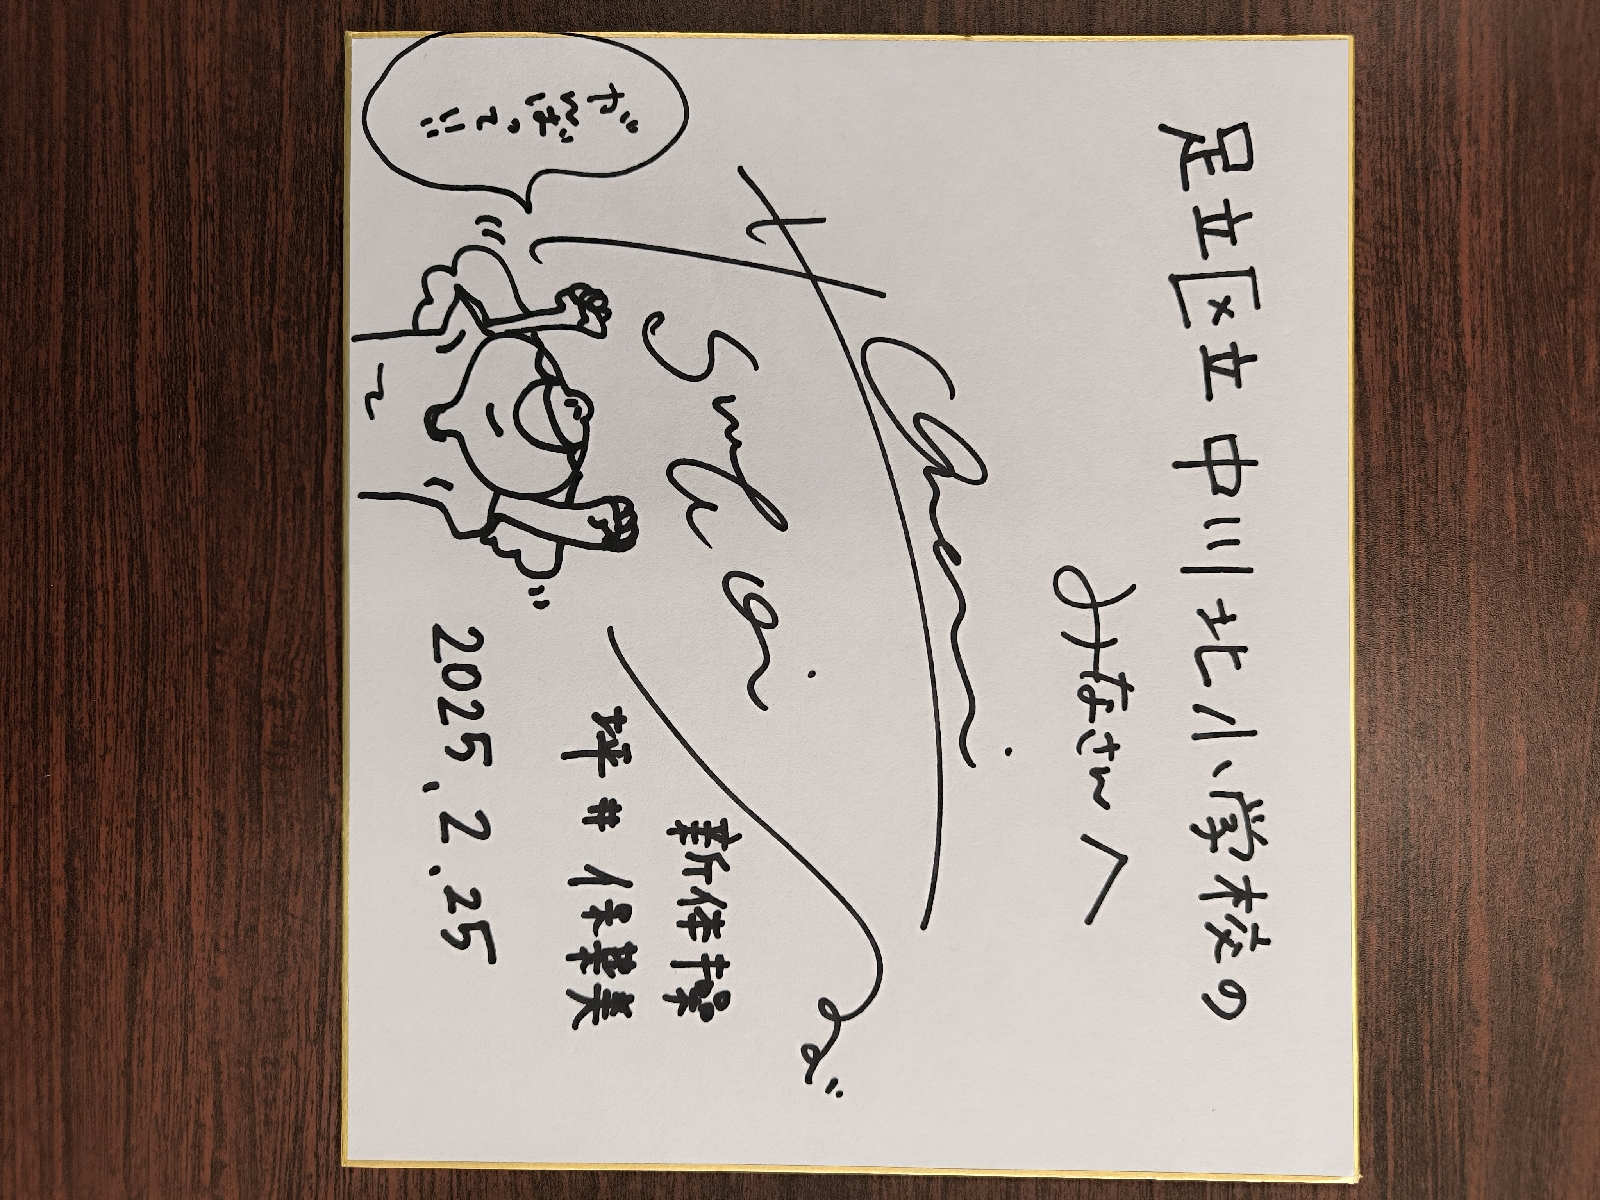 足立区立中川北小学校の
みなさんへ
新体操
坪井保菜美
2025.2.25
がんばって!!